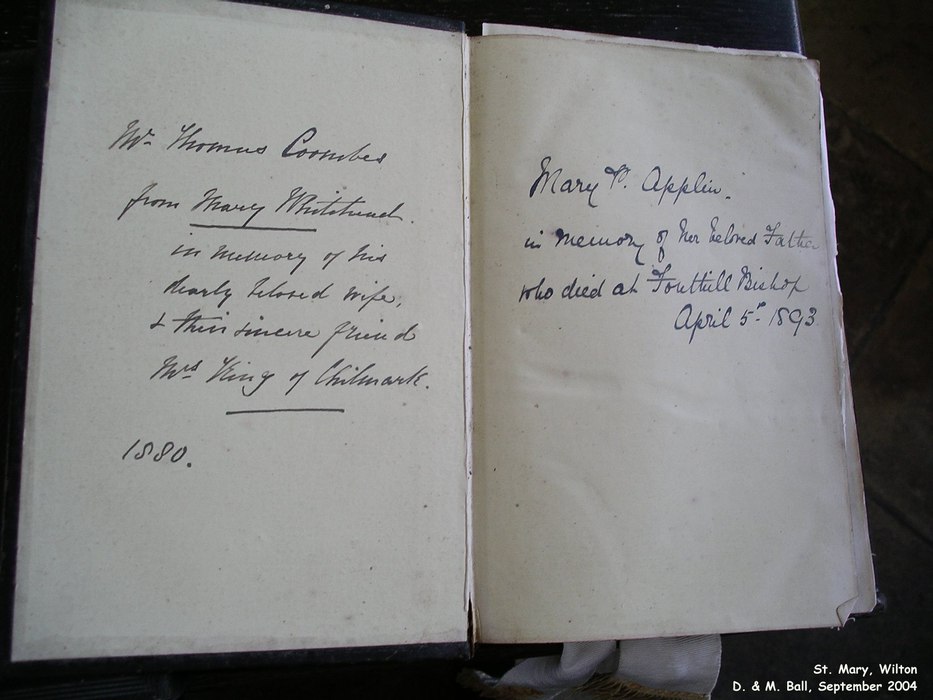 Mr. Thomas Coombes
from Mary Whitehead.
in memory of his
dearly beloved wife,
& their sincere friend
Mrs King of Chilmark.
1880.
Mary P. Applin.
in memory of her beloved Father
who died at Fonthill Bishop
April 5th 1893
St. Mary, Wilton
D. & M. Ball, September 2004